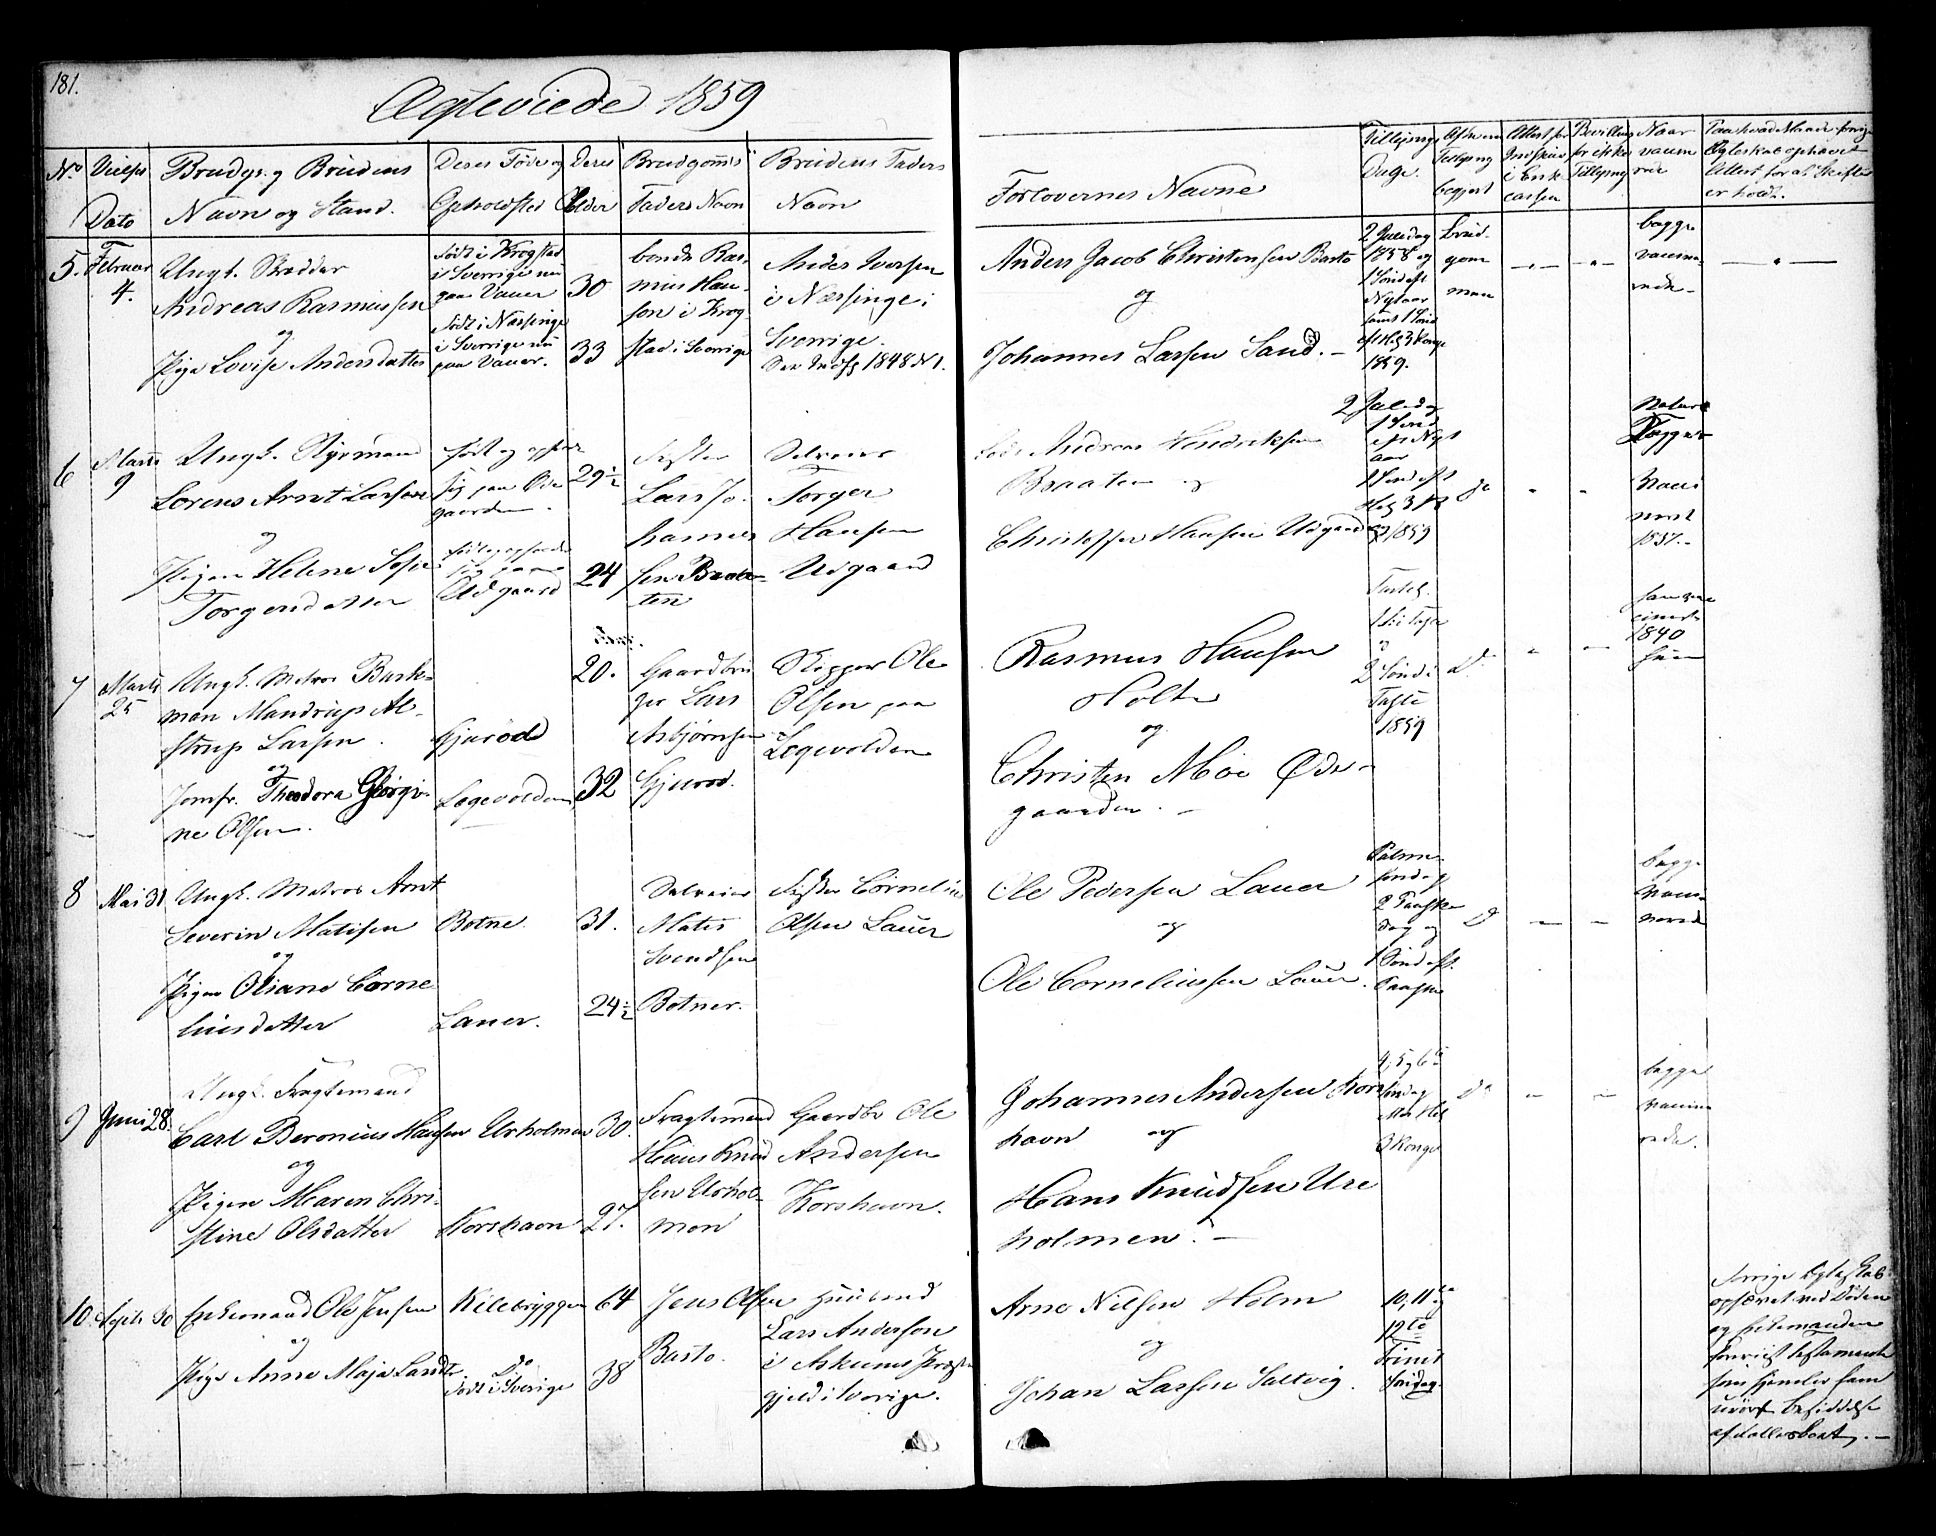 181.
Ægteviede 1859
No
Vielses
Dato
Brudgs. og Brudens
Navn og Stand.
Deres Føde og
Opholdsted
Deres
Alder
Brudgommens
Faders Navn
Brudens Faders
Navn
Forlovernes Navne
Tillysnings
Dage.
Af hvem
Tillysning
begjert
Attest for
Indskud
i Enke
cassen
Bevilling
for ikke
Tillysning
Naar
vaccine
rede
Ægteskab ophævet
Attest for at Skifte
er holdt.
5.
Februar
4.
Ungk. Skrædder
Andreas Rasmussen
og
Pige Lovise Andersdatter
født i Krogstad
i Sverrige nu
paa Vauer
født i Næssinge
i Sverrige nu
paa Vauer.
30
33
bonde Ras-
mus Han-
sen i Krog
stad i Sverrige
Anders Iversen
i Næssinge i
Sverrige.
1848 N 1.
Anders Jacob Christensen Basto
og
Johannes Larsen Sand. -
2 Juledag
1858 og
1 Sönd eft
Nytaar
samt 1 Sönd
eft H. 3 Konge
1859.
brud-
gom
men
begge
vaccine-
rede -
6
Marts
9
Ungk. Styrmand
Lorens Arnt Larsen
og
Pigen Helene Sofie
Torgersdatter
født og opfør
sig paa Øde
gaarden.
sig paa
Udgaard
29½
24
Fisker
Lars Jo-
hannes
sen Braa-
ten
Selveier
Torger
Hansen
Udgaard
Andreas Hendriksen
Braaten og
Christoffer Hansen Udgaard
2 Juledag
1 Sönd
eft Nyt
aar
1 Sönd eft
1859
Do
Naturl
Kopper
Vacci
neret
1837. -
7
Marts
25
Ungk. Matros Bark-
man Mandrup Al-
strup Larsen.
og
Jomfr. Theodora Georgi-
ne Olsen.
Gjerød
Løgevolden
20.
32
Gaardbru
ger Lars
Asbjørnsen
Gjerød.
Skipper Ole
Olsen paa
Løgevolden
Rasmus Hansen
Holte
og
Christen Moe Øde-
gaarden. -
Fastel.
1 Sö i Faste
o
2 Sönd i
Faste
1859
Do
1840
8
Mai 31
Ungk. Matros Arnt
Severin Matisen
og
Pigen Oliane Corne
liusdatter
Botne
Lauer.
31.
24½
Selveier
Mates
Svendsen
Botner.
Fisker Cornelius
Olsen Lauer
Ole Pedersen Lauer
og
Ole Corneliussen Lauer.
Palme
söndag
2 Paaske
dag og
1 Sönd eft.
Paaske
Do
begge
vacci-
nerede
9
Juni 28.
Ungk. Fragtemand
Carl Beronius Hansen
og
Pigen Maren Chri-
stine Olsdatter
Urholmen
Korshavn
30.
27.
Fragtemand
Hans Knud
sen Urhol-
men
Gaardbr Ole
Andersen
Korshavn.
Johannes Andersen Kors
havn og
Hans Knudsen Ure
holmen. -
4, 5 og 6te
söndag
3 Konger
Do
begge
vaccine
rede.
10.
Septb 30
Enkemand Ole Jensen
og
Pige Anne Maja Larsdtr
Kilebryggen
Do
Født i Sverige
64
38
Jens Olsen
Basto.
Huusmd
Lars Anderson
i Askums Præste
gjeld i Sverige.
Arne Nilsen Holm
og
Johan Larsen Saltvig.
10, 11te og
12te
Trinit
Söndag.
forrige Ægteskab
ophævet ved Døden
og Enkemanden
forevist testamente
som hjemler ham
uskiftet besiddelse
af fællesboet. -